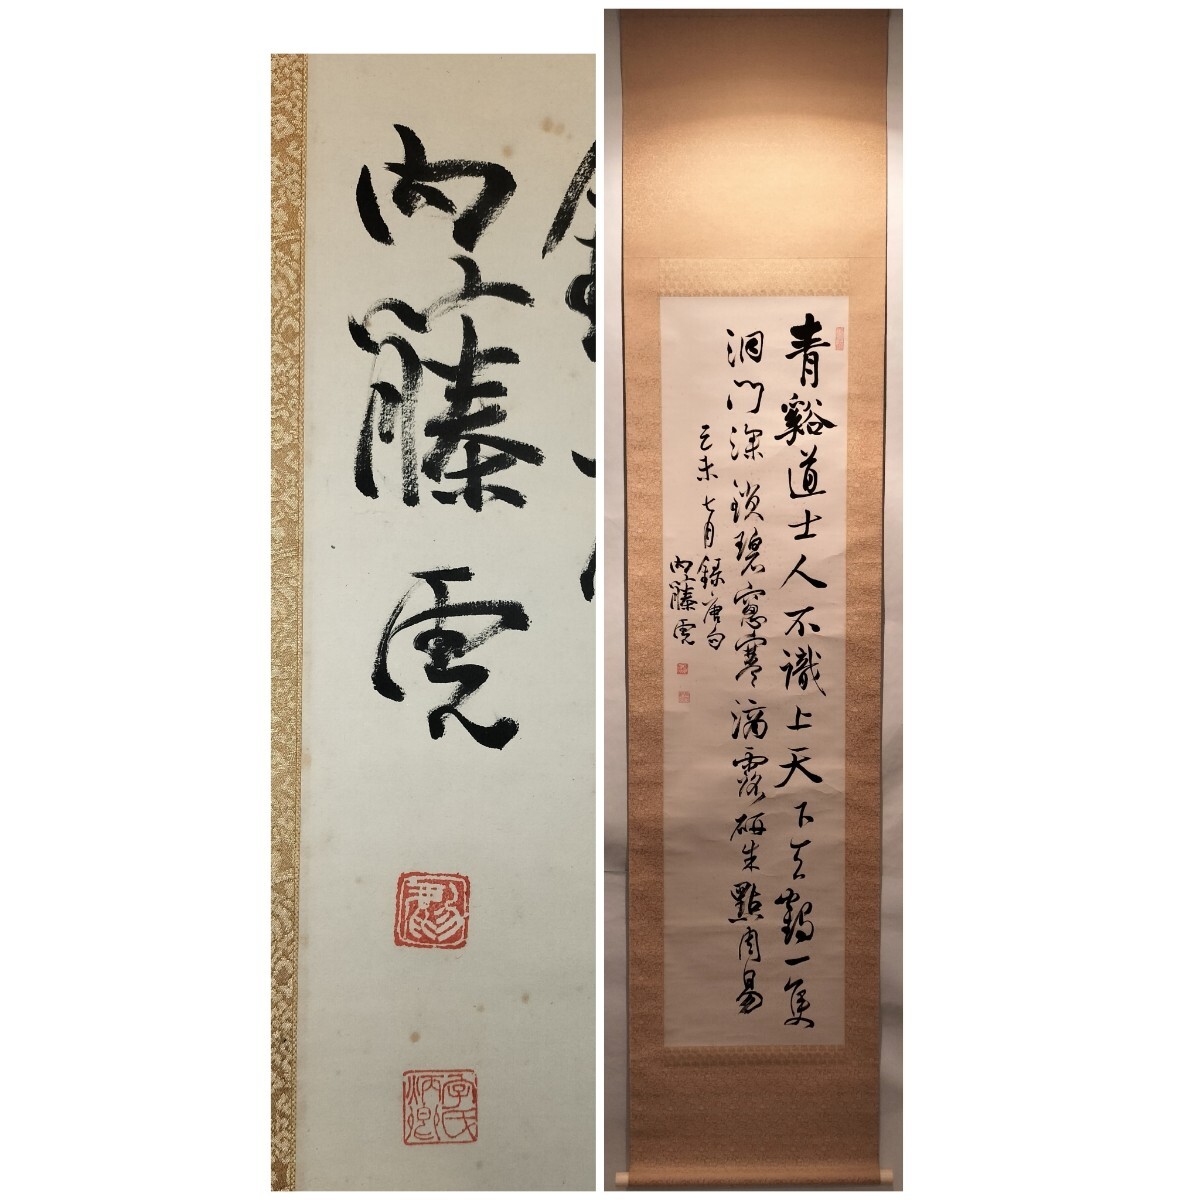 内藤虎
青谿道士人不識上天下天鶴一隻
洞門深鎖碧窓寒滴露研朱點周易
己未七月録唐句
内藤虎